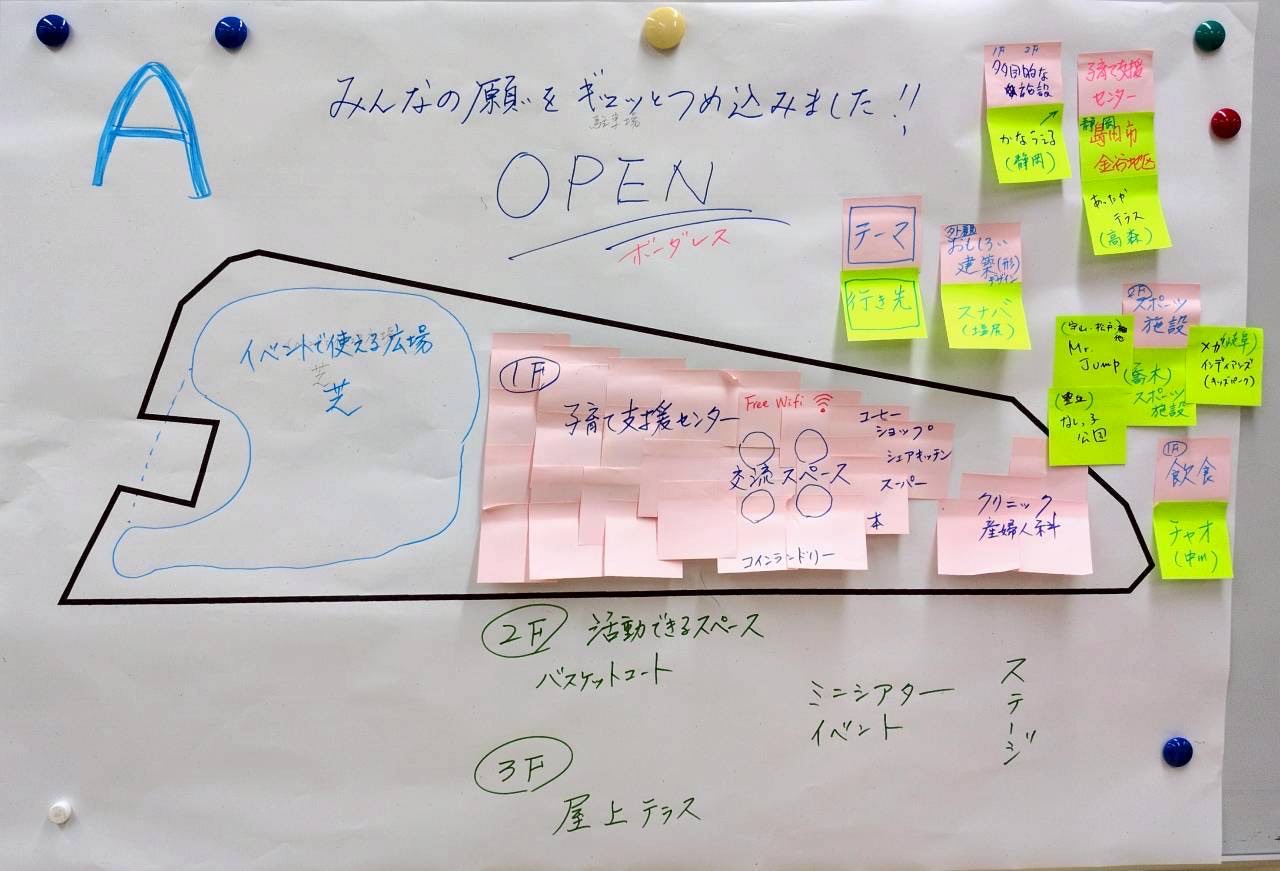 A
みんなの願いをギュッとつめ込みました!!
駐車場
OPEN
ボーダレス
1F 2F
多目的な
施設
かなうぇる
(静岡)
子育て支援
センター
静岡
島田市
金谷地区
あったか
テラス
(高森)
テーマ
行き先
外観
おもしろい
建築(形)
デザイン
スナバ
(塩尻)
2F
スポーツ
施設
(守山、松戸、他
Mr.
Jump
(喬木)
スポーツ
施設
メガ(岐阜)
インディアンズ
(キッズパーク)
(豊丘)
なしっ子
公園
1F
飲食
チャオ
(中川)
イベントで使える広場
芝
芝
1F
子育て支援センター
Free Wifi
交流スペース
コインランドリー
コーヒー
ショップ
シェアキッチン
スーパー
本
クリニック
産婦人科
2F 活動できるスペース
バスケットコート
ミニシアター
イベント
ステージ
3F
屋上テラス